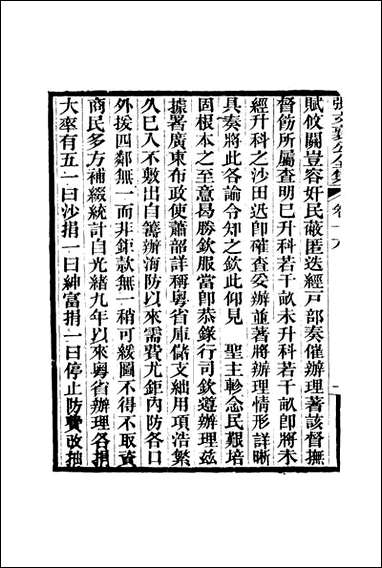 張文襄公全集 卷十八
賦攸關豈容奸民蔽匿迭經戸部奏催辦理著該督撫
督飭所屬查明已升科若干畝未升科若干畝卽將未
經升科之沙田迅卽確查妥辦並著將辦理情形詳晰
具奏將此各諭令知之欽此仰見 聖主軫念民艱培
固根本之至意曷勝欽服當卽恭錄行司欽遵辦理茲
據署廣東布政使蕭韶詳稱粵省庫儲支絀用項浩繁
久已入不敷出自籌辦海防以來需費尤鉅內防各口
外援四鄰無一而非鉅款無一稍可緩圖不得不取資
商民多方補綴統計自光緒九年以來粵省辦理各捐
大率有五一曰沙捐一曰紳富捐一曰停止防費改抽